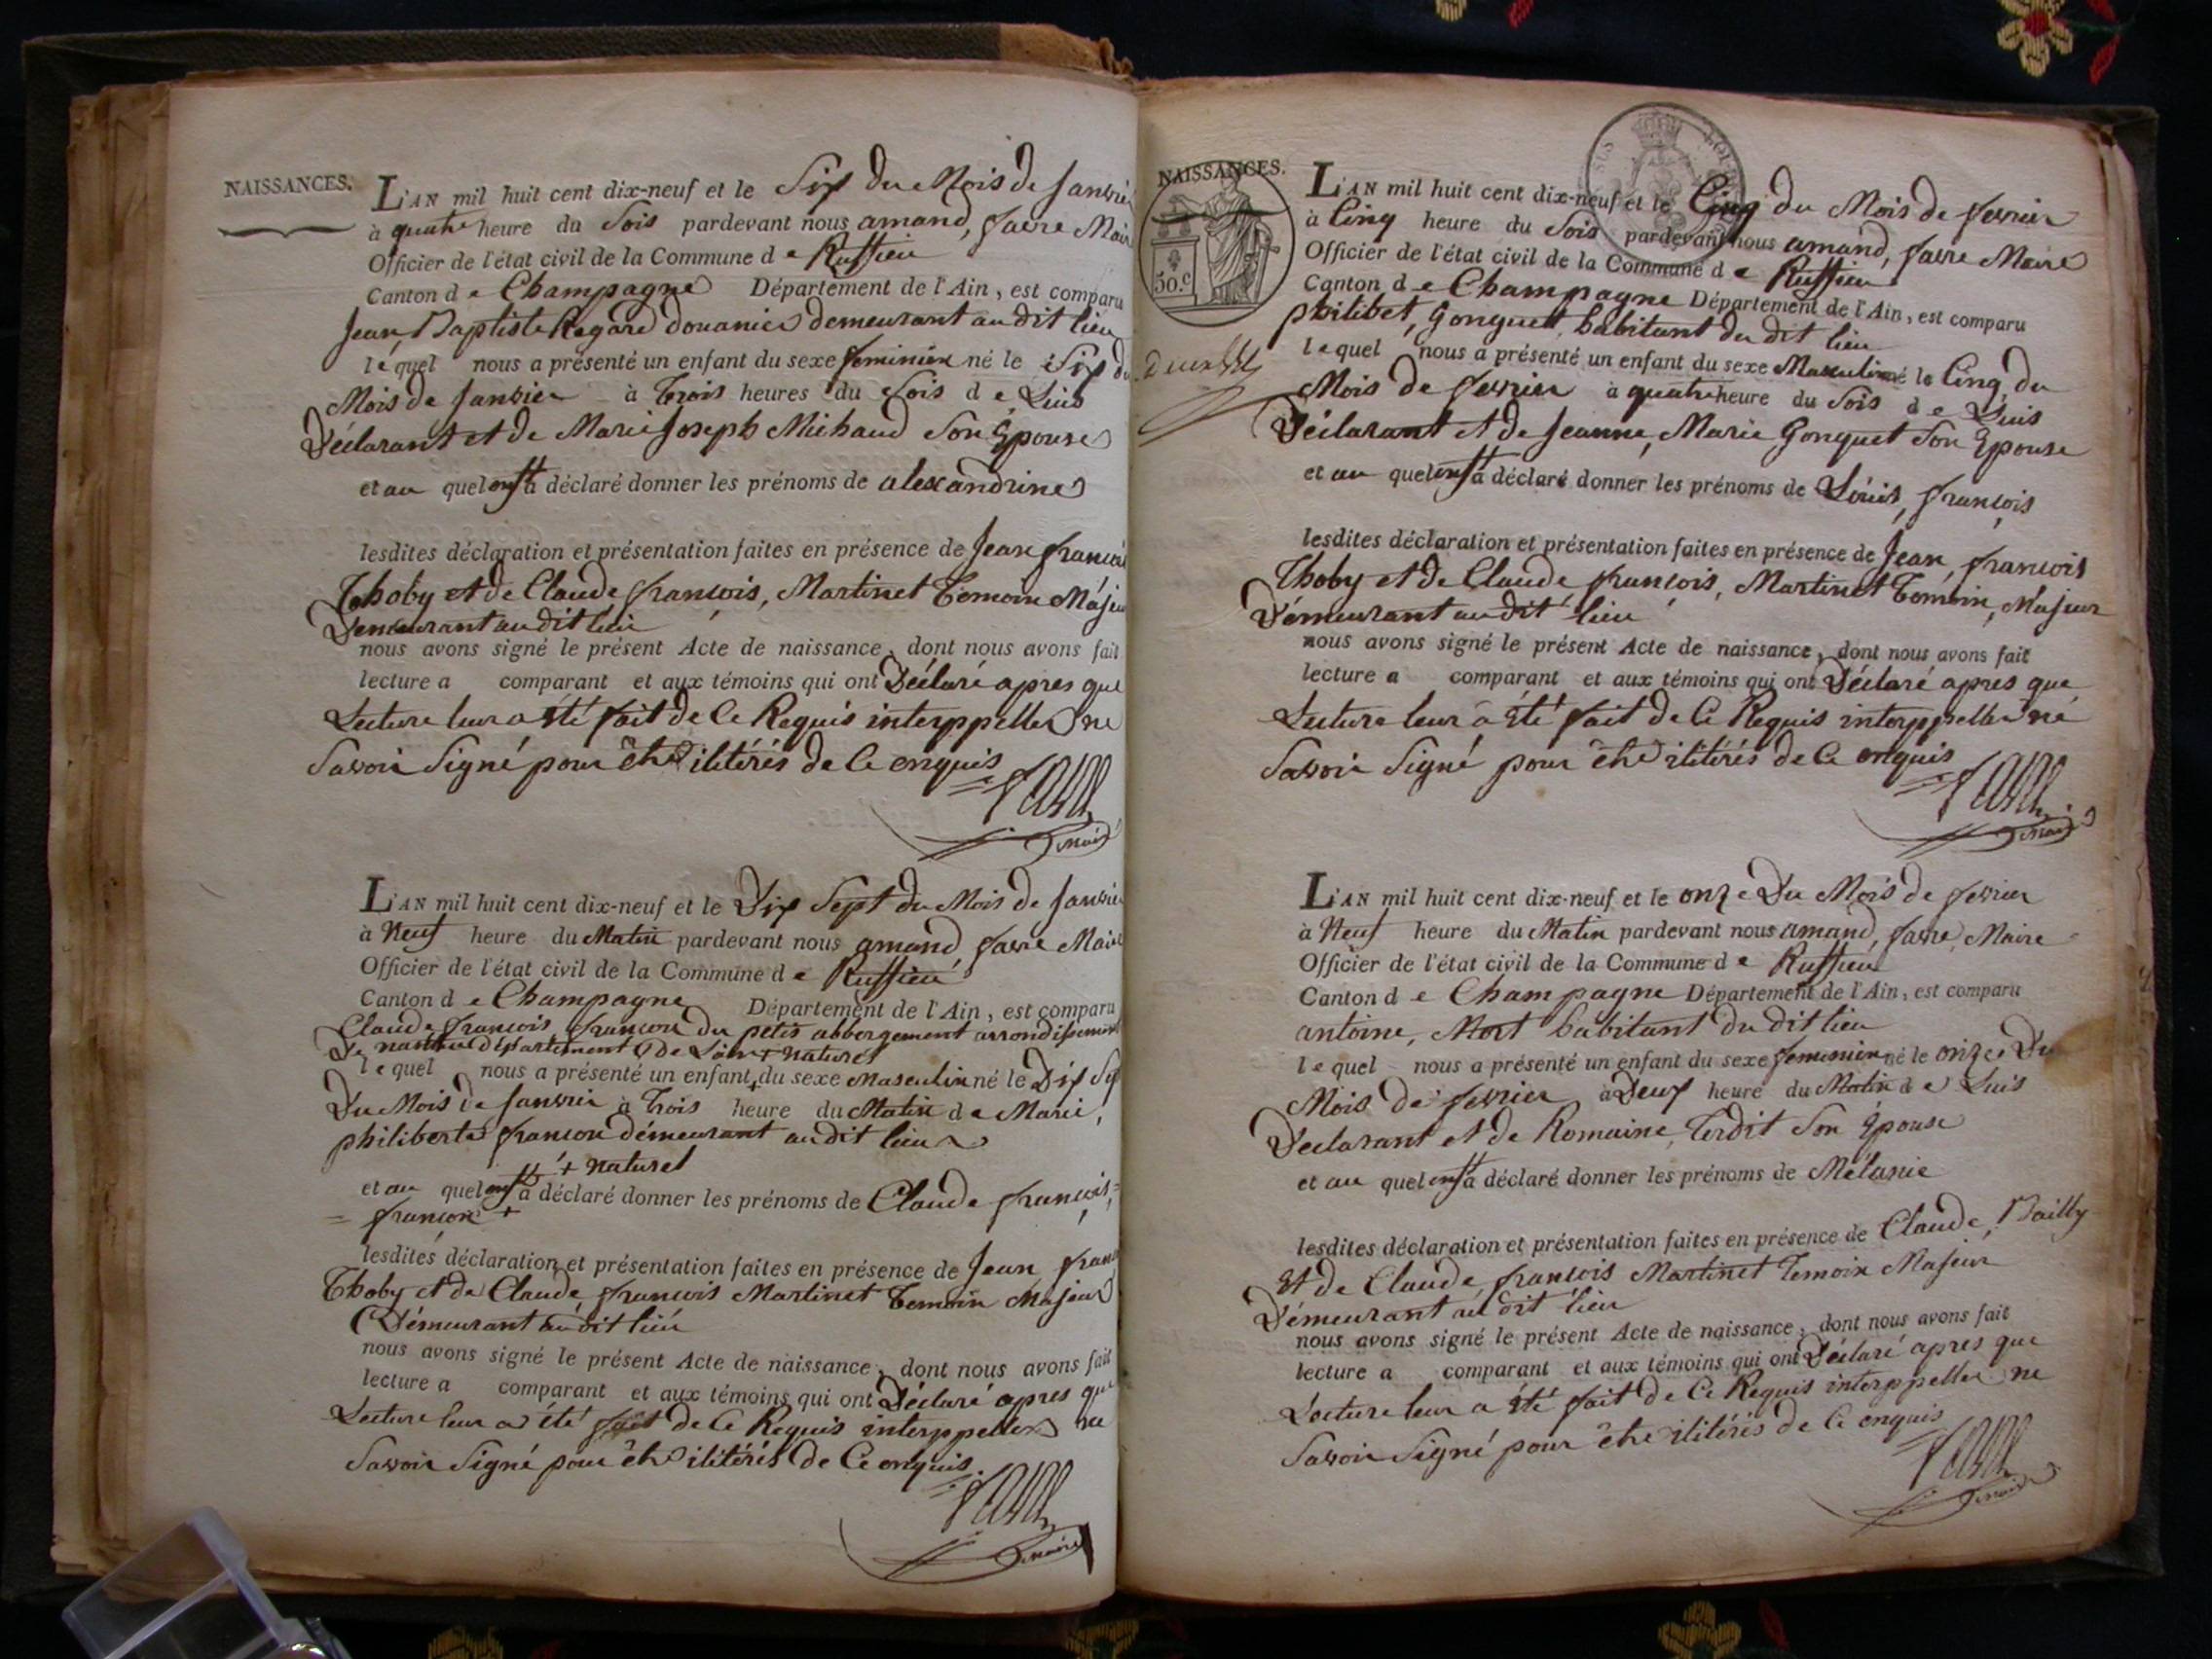 NAISSANCES.
L'AN mil huit cent dix-neuf et le Six du Mois de Janvier
à quatre heure du Soir pardevant nous amand, favre Maire
Officier de l'état civil de la Commune de Ruffieu
Canton de Champagne Département de l'Ain, est comparu
Jean, Baptiste Regard douanier demeurant au dit lieu
lequel nous a présenté un enfant du sexe feminin né le Six du
Mois de Janvier à Trois heures du Soir de Luis
Déclarant et de Marie Joseph Michaud Son Epouse
et au quel enft a déclaré donner les prénoms de alexandrine
lesdites déclaration et présentation faites en présence de Jean françois
Thoby et de Claude françois, Martinet Temoin Majeur
Demeurant au dit lieu
nous avons signé le présent Acte de naissance, dont nous avons fait
lecture a comparant et aux témoins qui ont Déclaré apres que
Lecture leur a été fait de Ce Requis interppeller ne
Savoir Signé pour être ilitérés de Ce enquis
favre
maire
L'AN mil huit cent dix-neuf et le Dix Sept du Mois de Janvier
à Neuf heure du Matin pardevant nous amand, favre Maire
Officier de l'état civil de la Commune de Ruffieu
Canton de Champagne Département de l'Ain, est comparu
Claude françois françon du petit abbergement arrondissement
De nantua département De L'ain + naturel
lequel nous a présenté un enfant + du sexe Masculin né le Dix Sept
Du Mois de Janvier à Trois heure du Matin de Marie,
philiberte françon démeurant au dit lieu
+ naturel
et au quel enft a déclaré donner les prénoms de Claude françois,
= françon +
lesdites déclaration et présentation faites en présence de Jean, françois
Thoby et de Claude, françois Martinet Temoin Majeur
Démeurant au dit lieu
nous avons signé le présent Acte de naissance, dont nous avons fait
lecture a comparant et aux témoins qui ont Déclaré apres que
Lecture leur a été fait de Ce Requis interppeller ne
Savoir Signé pour être ilitérés de Ce enquis.
favre
maire
NAISSANCES.
50.c
L'AN mil huit cent dix-neuf et le Cinq du Mois de fevrier
à Cinq heure du Soir pardevant nous amand, favre Maire
Officier de l'état civil de la Commune de Ruffieu
Canton de Champagne Département de l'Ain, est comparu
philibet, Gonguet, habitant du dit lieu
lequel nous a présenté un enfant du sexe Masculin né le Cinq du
Mois de fevrier à quatre heure du Soir de Luis
Déclarant et de Jeanne, Marie Gonguet Son Epouse
et au quel enft a déclaré donner les prénoms de Louis, françois
lesdites déclaration et présentation faites en présence de Jean, françois
Thoby et de Claude, françois, Martinet Témoin, Majeur
Démeurant au dit lieu
nous avons signé le présent Acte de naissance, dont nous avons fait
lecture a comparant et aux témoins qui ont Déclaré apres que
Lecture leur a été fait de Ce Requis interppeller né
Savoir Signé pour être ilitérés de Ce enquis
favre
maire
L'AN mil huit cent dix-neuf et le onze Du Mois de fevrier
à Neuf heure du Matin pardevant nous amand, favre, Maire
Officier de l'état civil de la Commune de Ruffieu
Canton de Champagne Département de l'Ain, est comparu
antoine, Mort habitant Du dit lieu
lequel nous a présenté un enfant du sexe feminin né le onze Du
Mois de fevrier à Deux heure du Matin de Luis
Déclarant et de Romaine, Terdit Son Epouse
et au quel enft a déclaré donner les prénoms de Mélanie
lesdites déclaration et présentation faites en présence de Claude, Bailly
Et de Claude, françois Martinet Temoin Majeur
Démeurant au dit lieu
nous avons signé le présent Acte de naissance, dont nous avons fait
lecture a comparant et aux témoins qui ont Déclaré apres que
Lecture leur a été fait de Ce Requis interppeller ne
Savoir Signé pour être ilitérés de Ce enquis
favre
maire